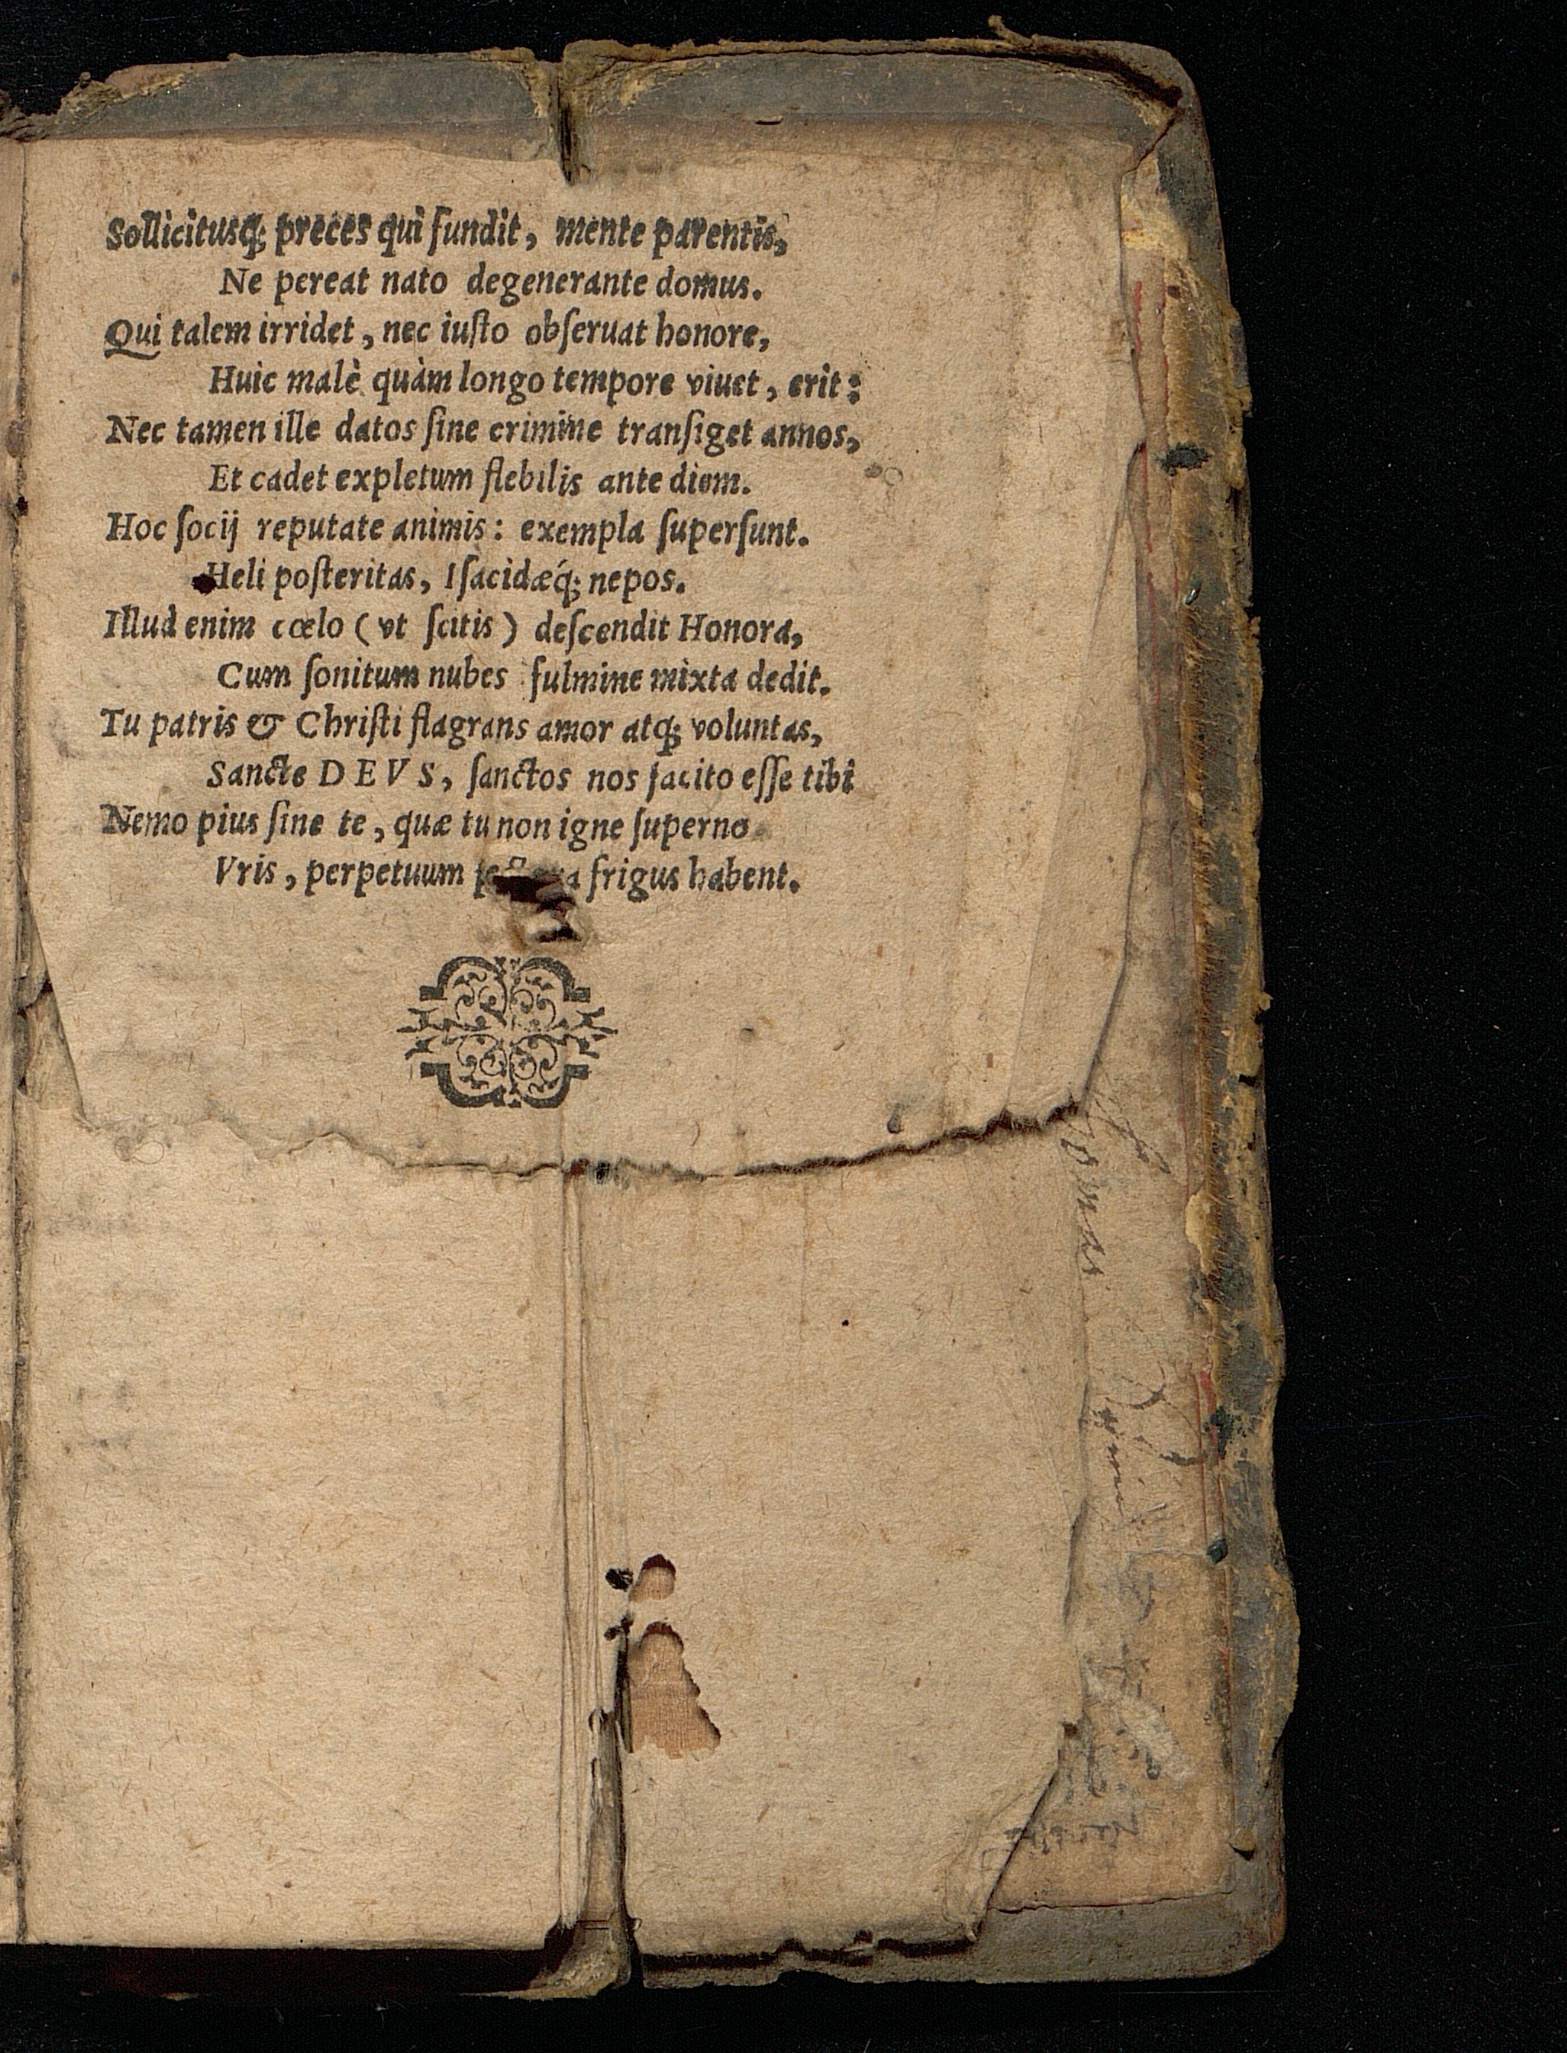 Sollicitusq; preces qui fundit, mente parentis,
Ne pereat nato degenerante domus.
Qui talem irridet, nec iusto obseruat honore,
Huic malè quàm longo tempore viuet, erit:
Nec tamen ille datos sine crimine transiget annos,
Et cadet expletum flebilis ante diem.
Hoc socij reputate animis: exempla supersunt.
Heli posteritas, Isacidæq́; nepos.
Illud enim cœlo (vt scitis) descendit Honora,
Cum sonitum nubes fulmine mixta dedit.
Tu patris & Christi flagrans amor atq; voluntas,
Sancte DEVS, sanctos nos facito esse tibi
Nemo pius sine te, quæ tu non igne superno
Vris, perpetuum frigus habent.